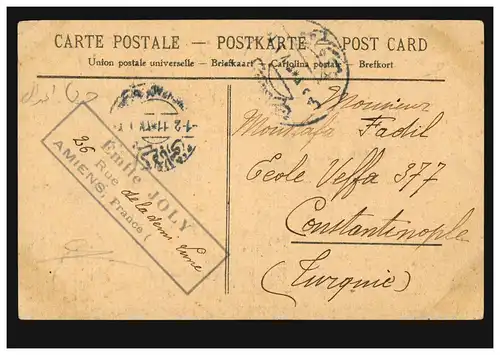 CARTE POSTALE – POSTKARTE – POST CARD
Union postale universelle – Briefkaart – Cartolina postale – Brefkort
Monsieur
Moustafa Fadil
Ecole Veffa 377
Constantinople
(Turquie)
Emile JOLY
26 Rue de la demi Lune
AMIENS, France (